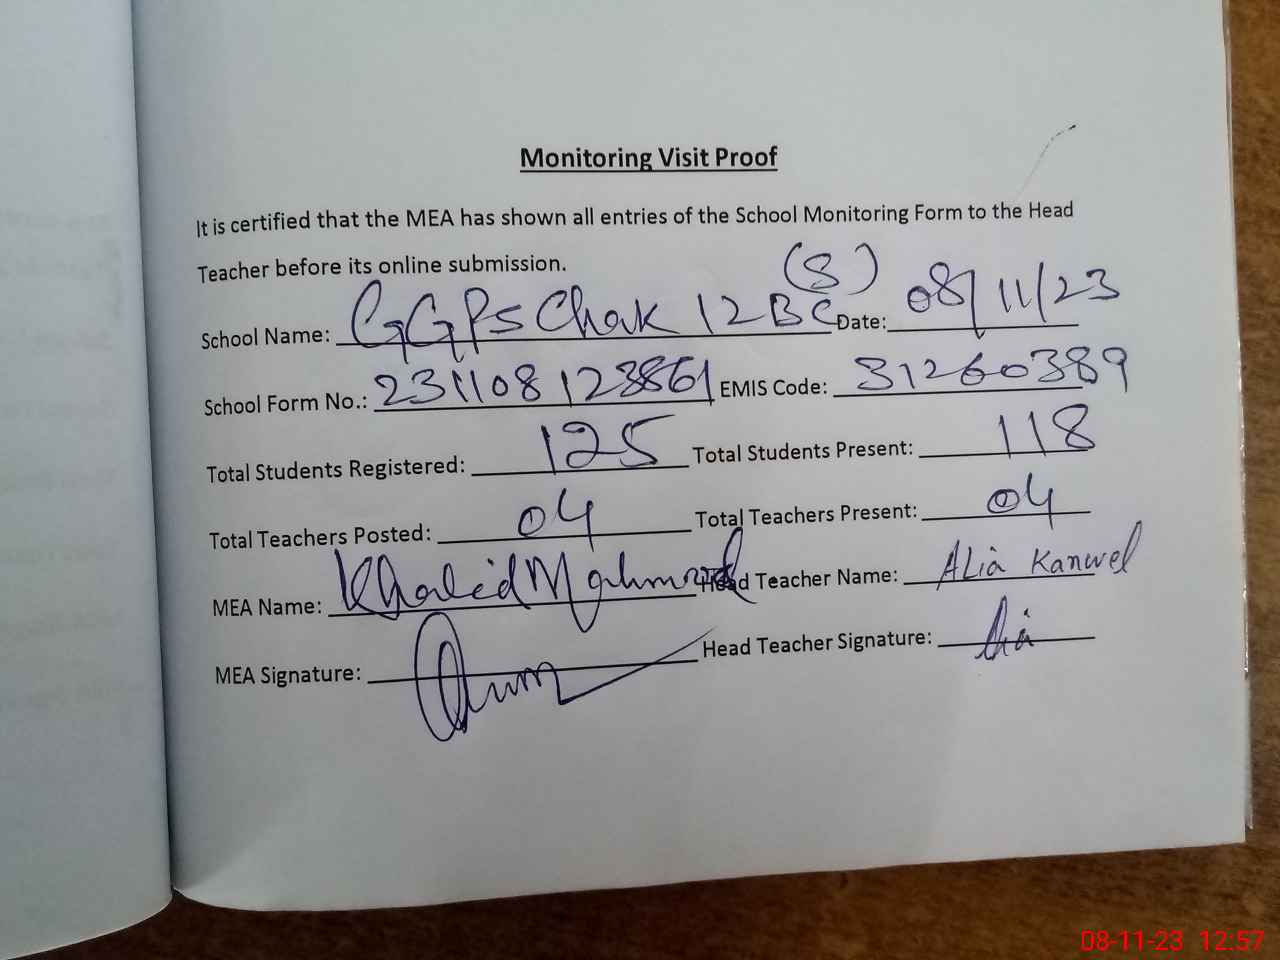 Monitoring Visit Proof
It is certified that the MEA has shown all entries of the School Monitoring Form to the Head
Teacher before its online submission.
School Name: GGPS Chak 12 BC (S) Date: 08/11/23
School Form No.: 231108123861 EMIS Code: 31260389
Total Students Registered: 125 Total Students Present: 118
Total Teachers Posted: 04 Total Teachers Present: 04
MEA Name: Khalid Mahmood Head Teacher Name: Alia Kanwel
MEA Signature: Head Teacher Signature:
08-11-23 12:57